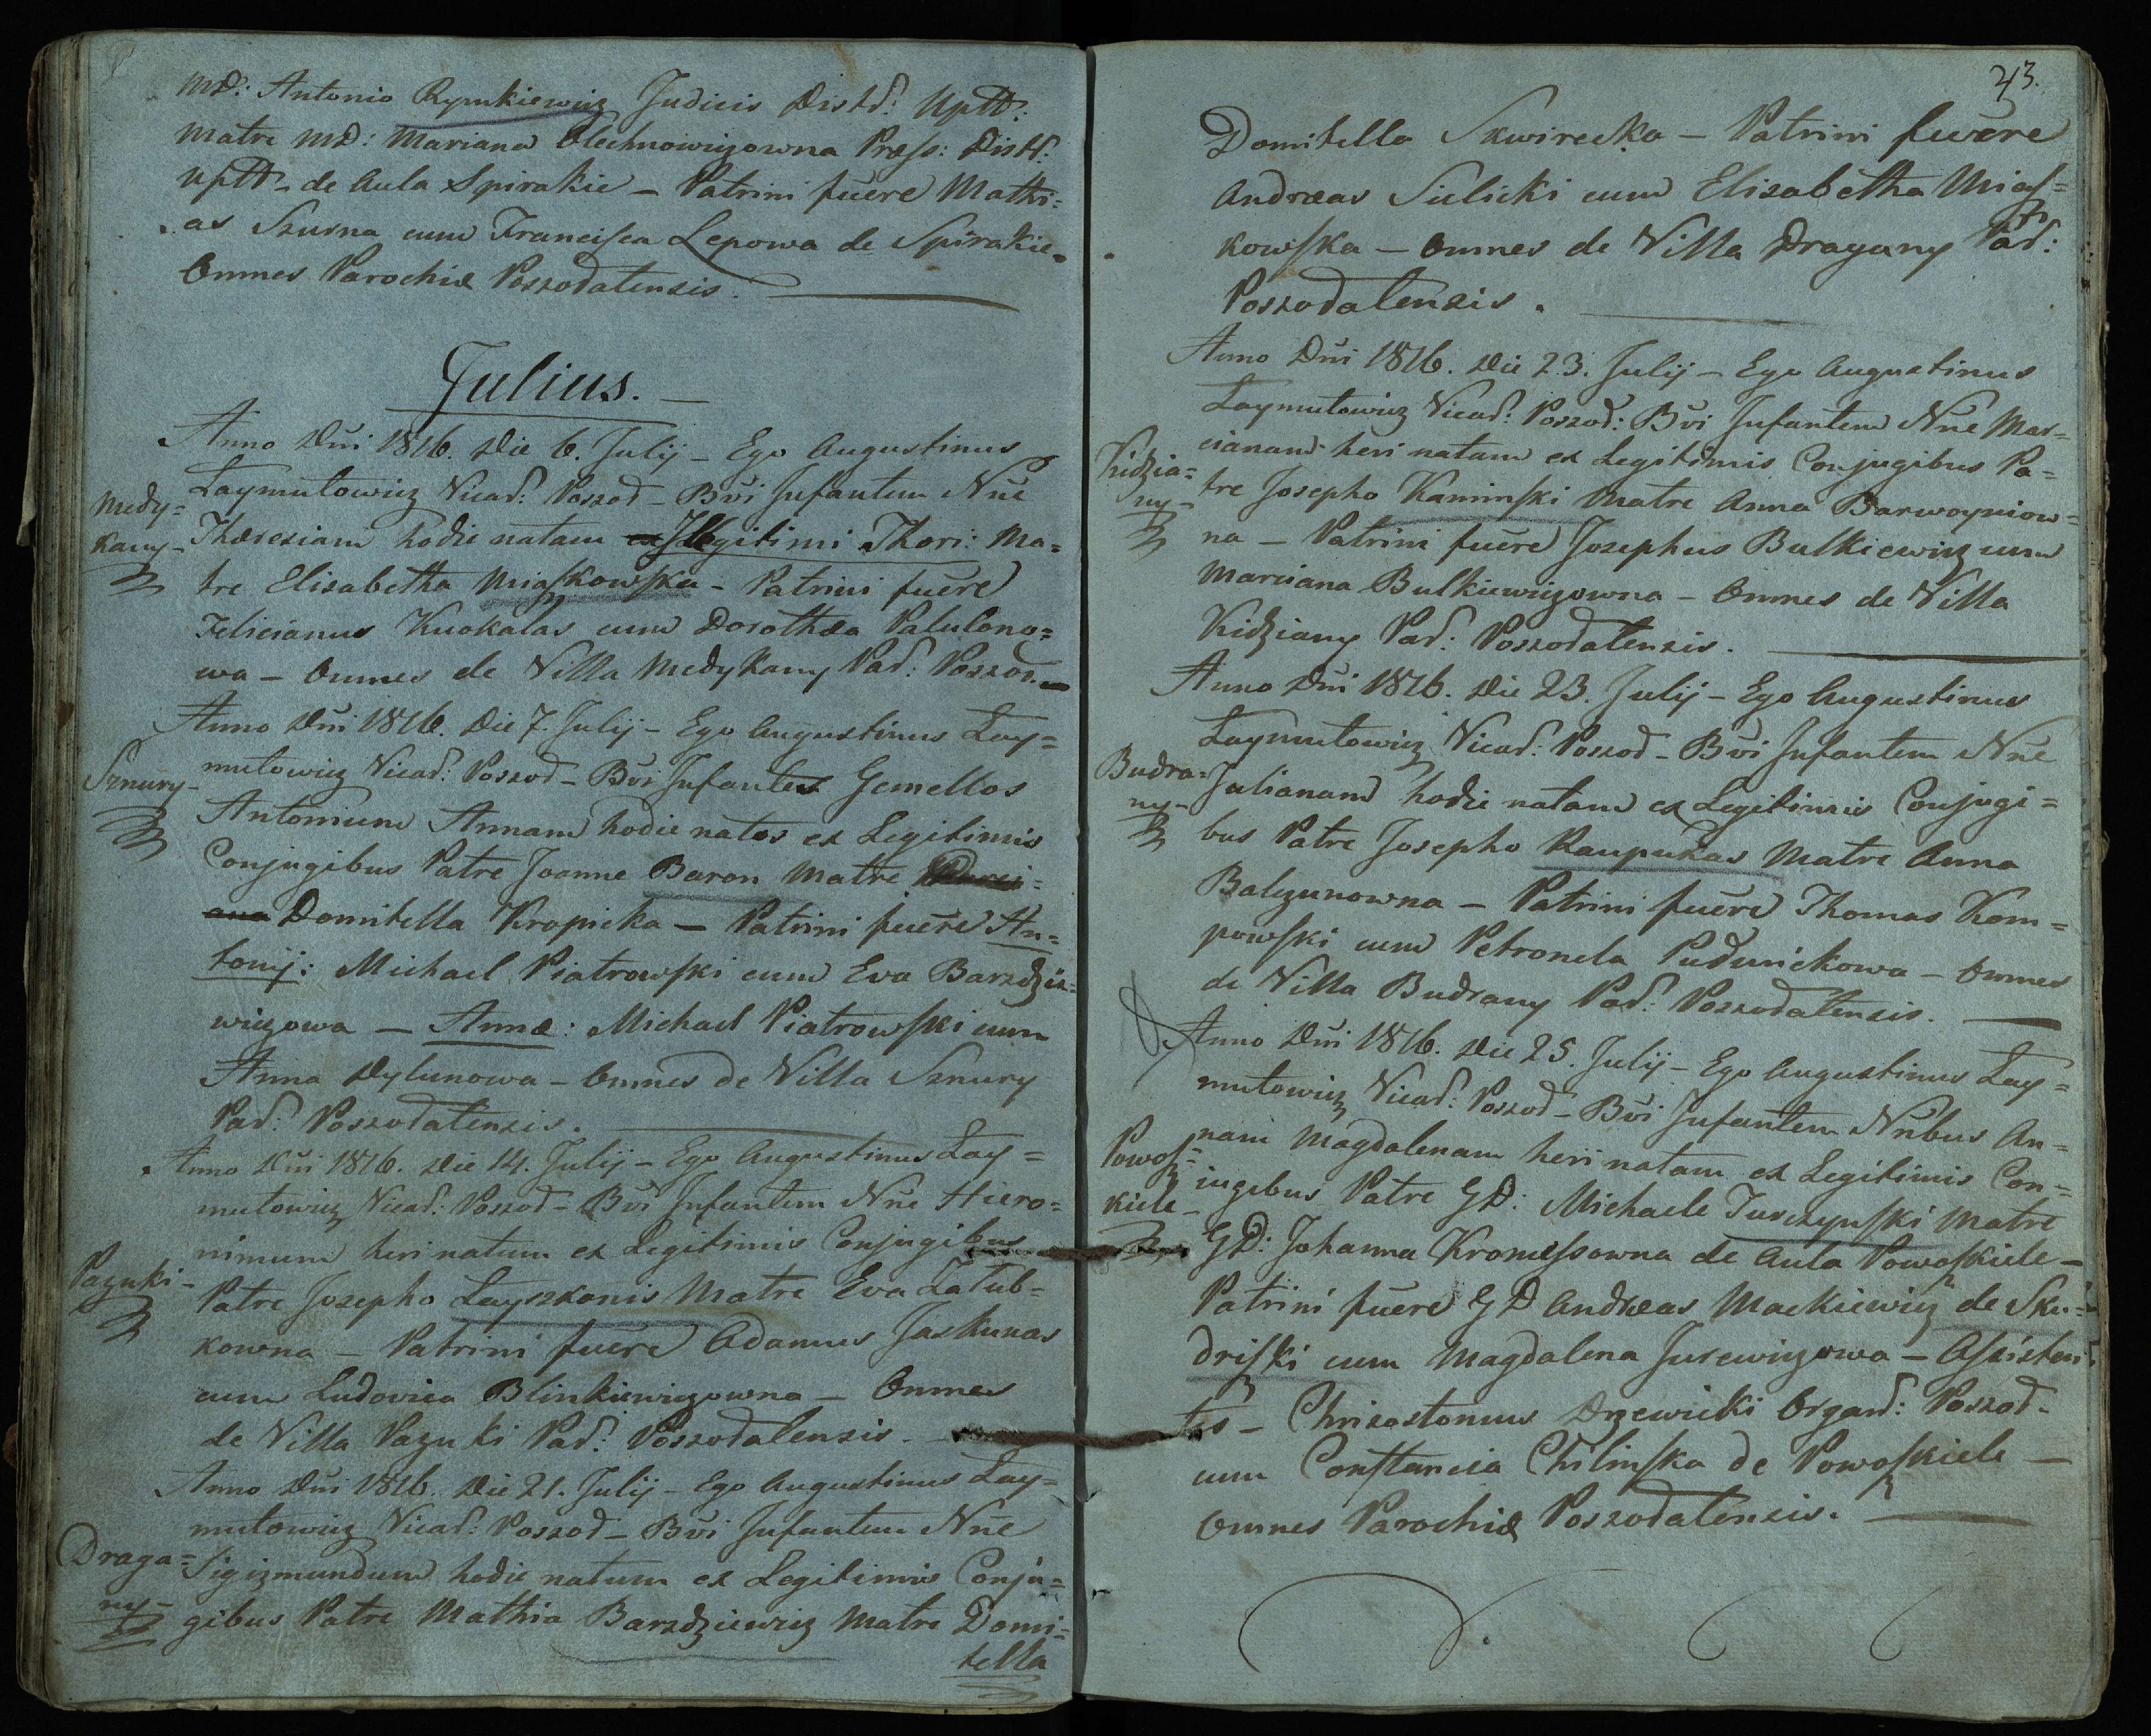 MD: Antonio Rymkiewicz Judicis Distr: Uptt:
Matre MD: Mariana Olechnowiczowna Præss: Distr:
Uptt_ de Aula Spirakie _ Patrini fuere Mathi=
as Szusna cum Francisca Lepowa de Spirakie.
Omnes Parochiæ Poszodatensis.
Julius.
Anno Dni 1816. Die 6. Julij _ Ego Augustinus
Laymutowicz Vicar: Poszod _ Bvi Infantem Nne
Medy=
kany_
Thæresiam hodie natam ex Illegitimi Thori: Ma=
tre Elisabetha Miaszkowska _ Patrini fuere
Felicianus Kuokalas cum Dorothæa Palulono=
wa _ Omnes de Villa Medykany Par: Poszod._
Anno Dni 1816. Die 7. Julij _ Ego Augustinus Lay=
Sznury_
mutowicz Vicar: Poszod _ Bvi Infantes Gemellos
Antonium Annam hodie natos ex Legitimis
Conjugibus Patre Joanne Baron Matre
Domitella Kropicka _ Patrini fuere An=
tonij: Michael Piatrowski cum Eva Barzdzie=
wiczowa _ Annæ: Michael Piatrowski cum
Anna Dylunowa _ Omnes de Villa Sznury
Par: Poszodatensis.
Anno Dni 1816. Die 14. Julij _ Ego Augustinus Lay=
mutowicz Vicar: Poszod _ Bvi Infantem Nne Hiero=
nimum heri natum ex Legitimis Conjugibus
Pazuki_
Patre Josepho Layszkonis Matre Eva Zatub=
kowna _ Patrini fuere Adamus Jaskunas
cum Ludovica Blinkiewiczowna _ Omnes
de Villa Pazuki Par: Poszodatensis _
Anno Dni 1816. Die 21. Julij _ Ego Augustinus Lay=
mutowicz Vicar: Poszod _ Bvi Infantem Nne
Draga=
ny_
Sigizmundum hodie natum ex Legitimis Conju=
gibus Patre Mathia Barzdziewicz Matre Domi=
tella
43.
Domitella Skwirecka _ Patrini fuere
Andræas Sulicki cum Elisabetha Miasz=
kowska _ Omnes de Villa Dragany Par:
Poszodatensis.
Anno Dni 1816. Die 23. Julij _ Ego Augustinus
Laymutowicz Vicar: Poszod: Bvi Infantem Nne Mar=
Kidzia=
ny_
cianam heri natam ex Legitimis Conjugibus Pa=
tre Josepho Kaminski Matre Anna Barwoyniow=
na _ Patrini fuere Josephus Bulkiewicz cum
Marciana Bulkiewiczowna _ Omnes de Villa
Kidziany Par: Poszodatensis.
Anno Dni 1816. Die 23. Julij _ Ego Augustinus
Laymutowicz Vicar: Poszod _ Bvi Infantem Nne
Budra=
ny_
Julianam hodie natam ex Legitimis Conjugi=
bus Patre Josepho Raupukas Matre Anna
Balczunowna _ Patrini fuere Thomas Kom=
powski cum Petronela Pudunickowa _ Omnes
de Villa Budrany Par: Poszodatensis.
Anno Dni 1816. Die 25. Julij _ Ego Augustinus Lay=
mutowicz Vicar: Poszod _ Bvi Infantem Nnbus An=
Powosz=
kiele_
nam Magdalenam heri natam ex Legitimis Con=
jugibus Patre GD: Michaele Turczynski Matre
GD: Johanna Kromessowna de Aula Powoszkiele _
Patrini fuere GD Andræas Mackiewicz de Sku=
driszki cum Magdalena Jurewiczowa _ Assisten
tes _ Chrizostomus Drzewicki Organ: Poszod _
cum Constancia Chilinska de Powoszkiele _
Omnes Parochiæ Poszodatensis.